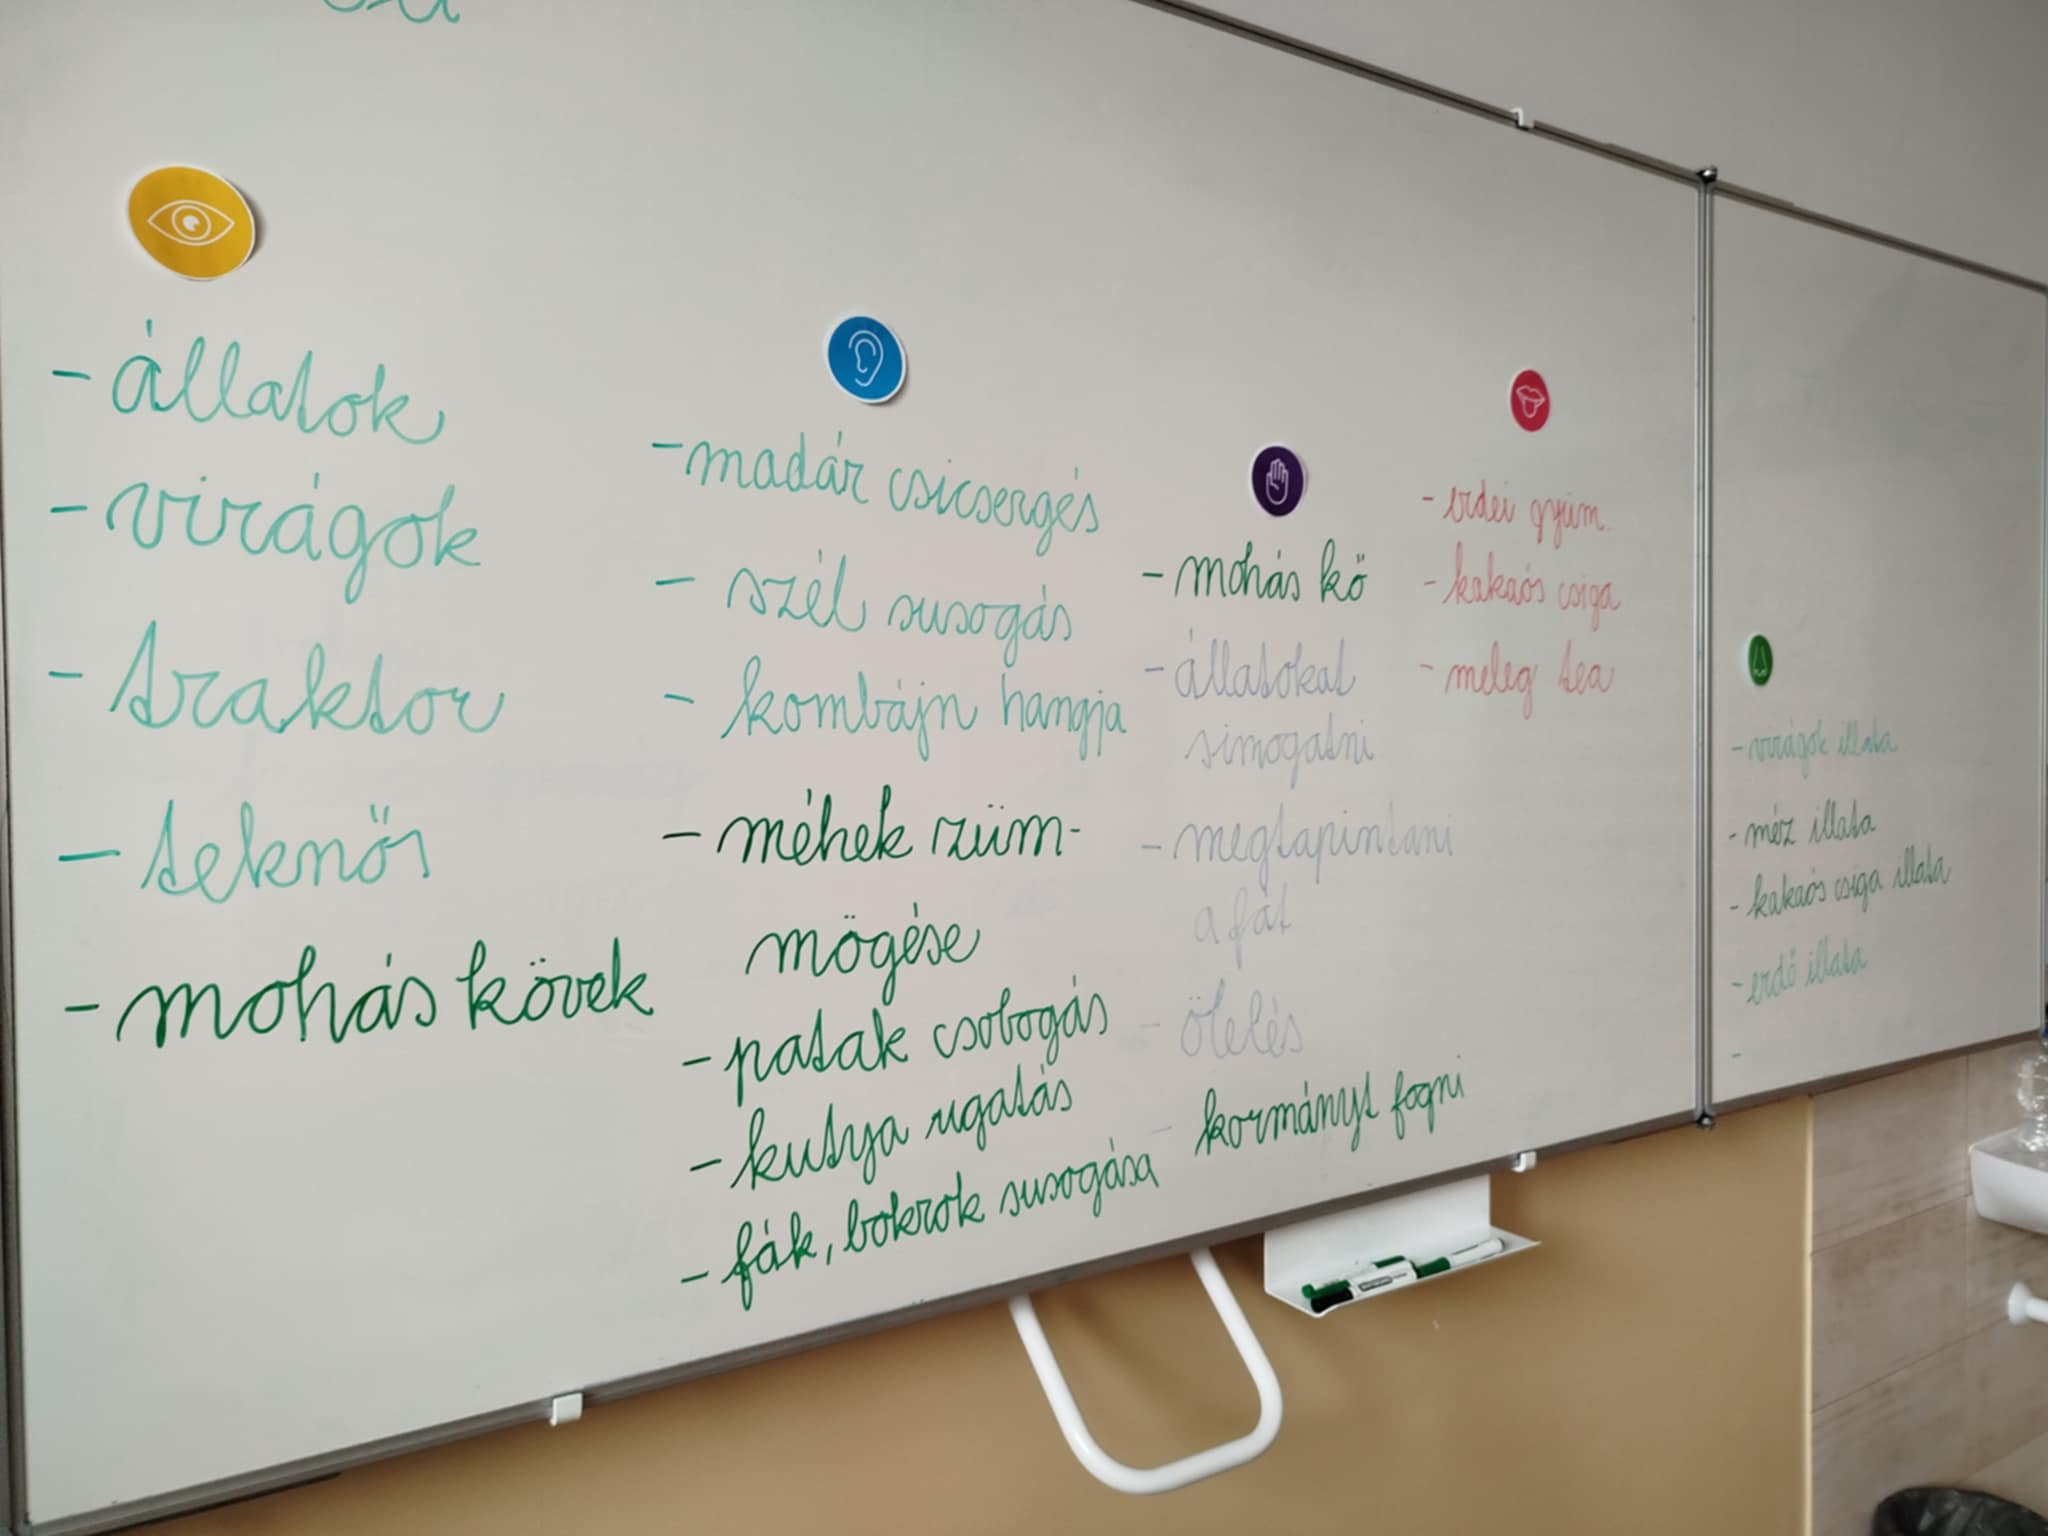 - állatok
- virágok
- traktor
- teknős
- mohás kövek
- madár csicsergés
- szél susogás
- kombájn hangja
- méhek züm-
mögése
- patak csobogás
- kutya ugatás
- fák, bokrok susogása
- mohás kő
- állatokat
simogatni
- megtapintani
a fát
- ölelés
- kormányt fogni
- erdei gyüm.
- kakaós csiga
- meleg tea
- virágok illata
- méz illata
- kakaós csiga illata
- erdő illata
-